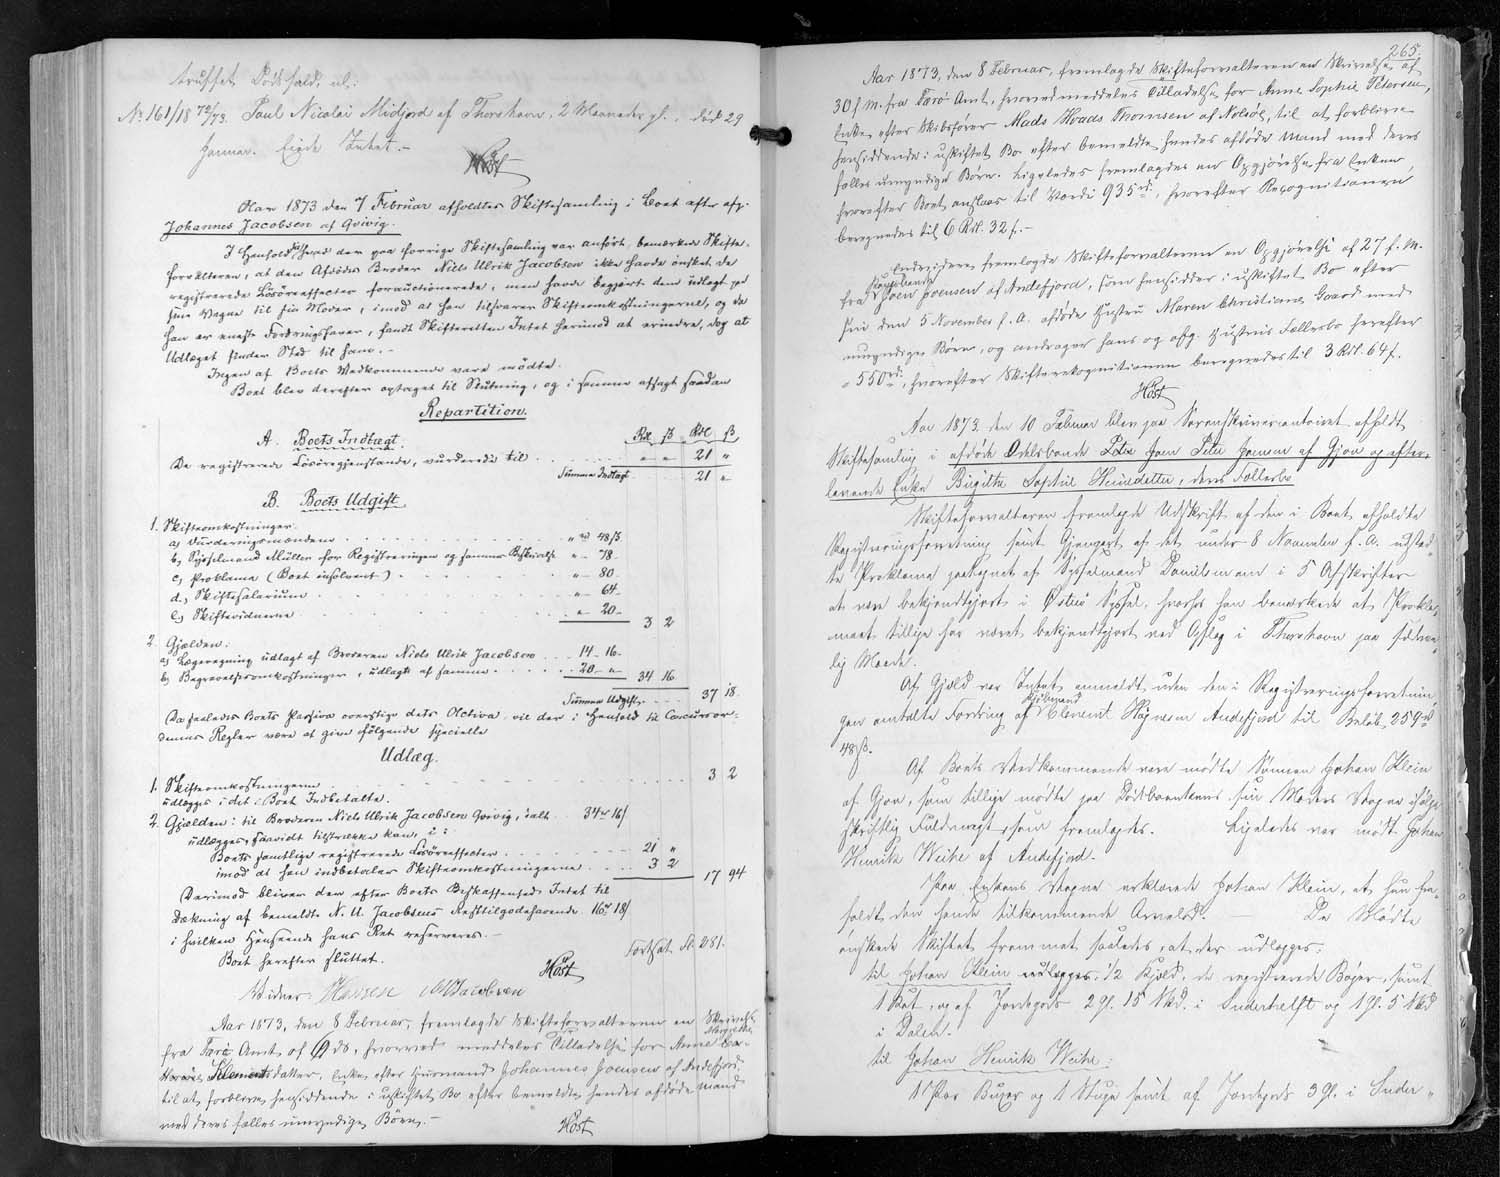 truffet Dødsfald, nl:
No 161/1872/73. Poul Nicolai Midjord af Thorshavn, 2 Maaneder gl., død 29
Januar. Eiede Intet.-
Høst
Aar 1873 den 7 Februar afholdtes Skiftesamling i Boet efter afg.
Johannes Jacobsen af Qvivig.
I Henhold til hvad der paa forrige Skiftesamling var anført, bemærkede Skifte-
forvalteren, at den Afdødes Broder Niels Ulrik Jacobsen ikke havde ønsket de
registrerede Løsøreeffecter forauctionerede, men havde begjært dem udlagt paa
sine Vegne til sin Moder, imod at han tilsvarer Skifteomkostningerne, og da
han er eneste Fordringshaver, fandt Skifteretten Intet herimod at erindre, dog at
Udlæget finder Sted til ham.-
Ingen af Boets Vedkommende vare mødte.
Boet blev derefter optaget til Slutning, og i samme afsagt saadan
Repartition.
A. Boets Indtægt. Rdl ß Rdl ß
De registrerede Løsøregjenstande, vurderede til . . . . " " 21 "
Summa Indtægt 21 "
B. Boets Udgift.
1. Skifteomkostninger:
a) Vurderingsmændene . . . " 48ß
b) Sysselmand Müller for Registreringen og sammes Beskrivelse " - 78 -
c) Proklama (Boet insolvent) . . . " - 80 -
d) Skiftesalarium . . . " 64 -
e) Skiftevidnerne . . . " 20 -
3 2
2. Gjælden:
a) Lægeregning udlagt af Broderen Niels Ulrik Jacobsen . . . 14 - 16 -
b) Begravelsesomkostninger, udlagte af samme . . . 20 - " - 34 16
Summa Udgift . . . 37 18
Da saaledes Boets Passiva overstige dets Activa, vil der i Henhold til Concursor-
denens Regler være at give følgende specielle
Udlæg.
1. Skifteomkostningerne . . . 3 2
udlægges i det i Boet Indbetalte.
2. Gjælden: til Broderen Niels Ulrik Jacobsen Qvivig, ialt 34 rd 16ß
udlægges, saavidt tilstrække kan, i:
Boets samtlige registrerede Løsøreeffecter . . . 21 "
imod at han indbetaler Skifteomkostningerne . . . 3 2
17 94
Derimod bliver der efter Boets Beskaffenhed Intet til
Dækning af bemeldte N. U. Jacobsens Resttilgodehavende 16 rd 18ß
i hvilken Henseende hans Ret reserveres.-
Boet herefter sluttet. Fortsat. fl. 281.
Høst
Vidner Hansen Jacobsen
Aar 1873, den 8 Februar, fremlagde Skifteforvalteren en Skrivelse
fra Færø Amt af Ds, hvorved meddeles Tilladelse for Anne Margrethe Ca-
Klementsdatter, Enke efter Huusmand Johannes Joensen af Andefjord,
til at forblive hensiddende i uskiftet Bo efter bemeldte hendes afdøde Mand
med deres fælles umyndige Børn.-
Høst
265.
Aar 1873, den 8 Februar, fremlagde Skifteforvalteren en Skrivelse af
30 f. M. fra Færø Amt, hvorved meddeles Tilladelse for Anne Sophie Petersen,
Enke efter Skibsfører Mads Hoads Thomsen af Nolsø, til at forblive
hensiddende i uskiftet Bo efter bemeldte hendes afdøde Mand med deres
fælles umyndige Børn. Ligeledes fremlagdes en Opgjørelse fra Enken,
hvorefter Boet anslaaes til Værdi 935 rd., hvorefter Recognitionen
beregnedes til 6 Rdl. 32 ß.-
Endvidere fremlagde Skifteforvalteren en Opgjørelse af 27 f. M.
fra Joen Joensen af Andefjord, som hensidder i uskiftet Bo efter
sin den 5 November f. A. afdøde Hustru Maren Christiane Gaard med
umyndige Børn, og andrager hans og afg. Hustrus Fællesbo herefter
550 rd., hvorefter Skifterekognitionen beregnedes til 3 Rdl. 64 ß.
Høst
Aar 1873, den 10 Februar blev paa Sorenskrivercontoiret afholdt
Skiftesamling i afdøde Odelsbonde Joen Peter Joensen af Gjov og efter-
levende Enke Birgithe Sophie Heinedatter, deres Fællesbo
Skifteforvalteren fremlagde Udskrift af den i Boet afholdte
Registreringsforretning samt Gjenpart af det under 8 November f. A. udsted-
te Proklama paategnet af Sysselmand Danielsen om i 5 Afskrifter
at være bekjendtgjort i Østerø Syssel, hvorhos han bemærkede at Prokla-
maet tillige har været bekjendtgjort ved Opslag i Thorshavn paa sædvan-
lig Maade.
Af Gjæld var Intet anmeldt, uden den i Registreringsforretnin-
gen omtalte Fordring af Kjøbmand Clement Højgaard Andefjord til Beløb 259 rd
48 ß.
Af Boets Vedkommende vare mødte Sønnen Johan Klein
af Gjov, som tillige mødte paa Dødboenkens sin Moders Vegne ifølge
skriftlig Fuldmagt, som fremlagdes. Ligeledes var mødt Johan
Henrik Weihe af Andefjord.
Paa Enkens Vegne erklærede Johan Klein, at hun fra-
faldt den hende tilkommende Arvelod. - De Mødte
ønskede Skiftet fremmet saaledes, at der udlægges:
til Johan Klein udlægges: 1/2 Kjeld, de registrerede Bøger, samt
1 Kat, og af Jordegods 2 Gl. 15 Skd. i Inderhelft og 1 Gl. 5 Skd
i Dalen.
til Johan Henrik Weihe:
1 Par Buxer og 1 Stuge samt af Jordegods 3 Gl. i Inder-